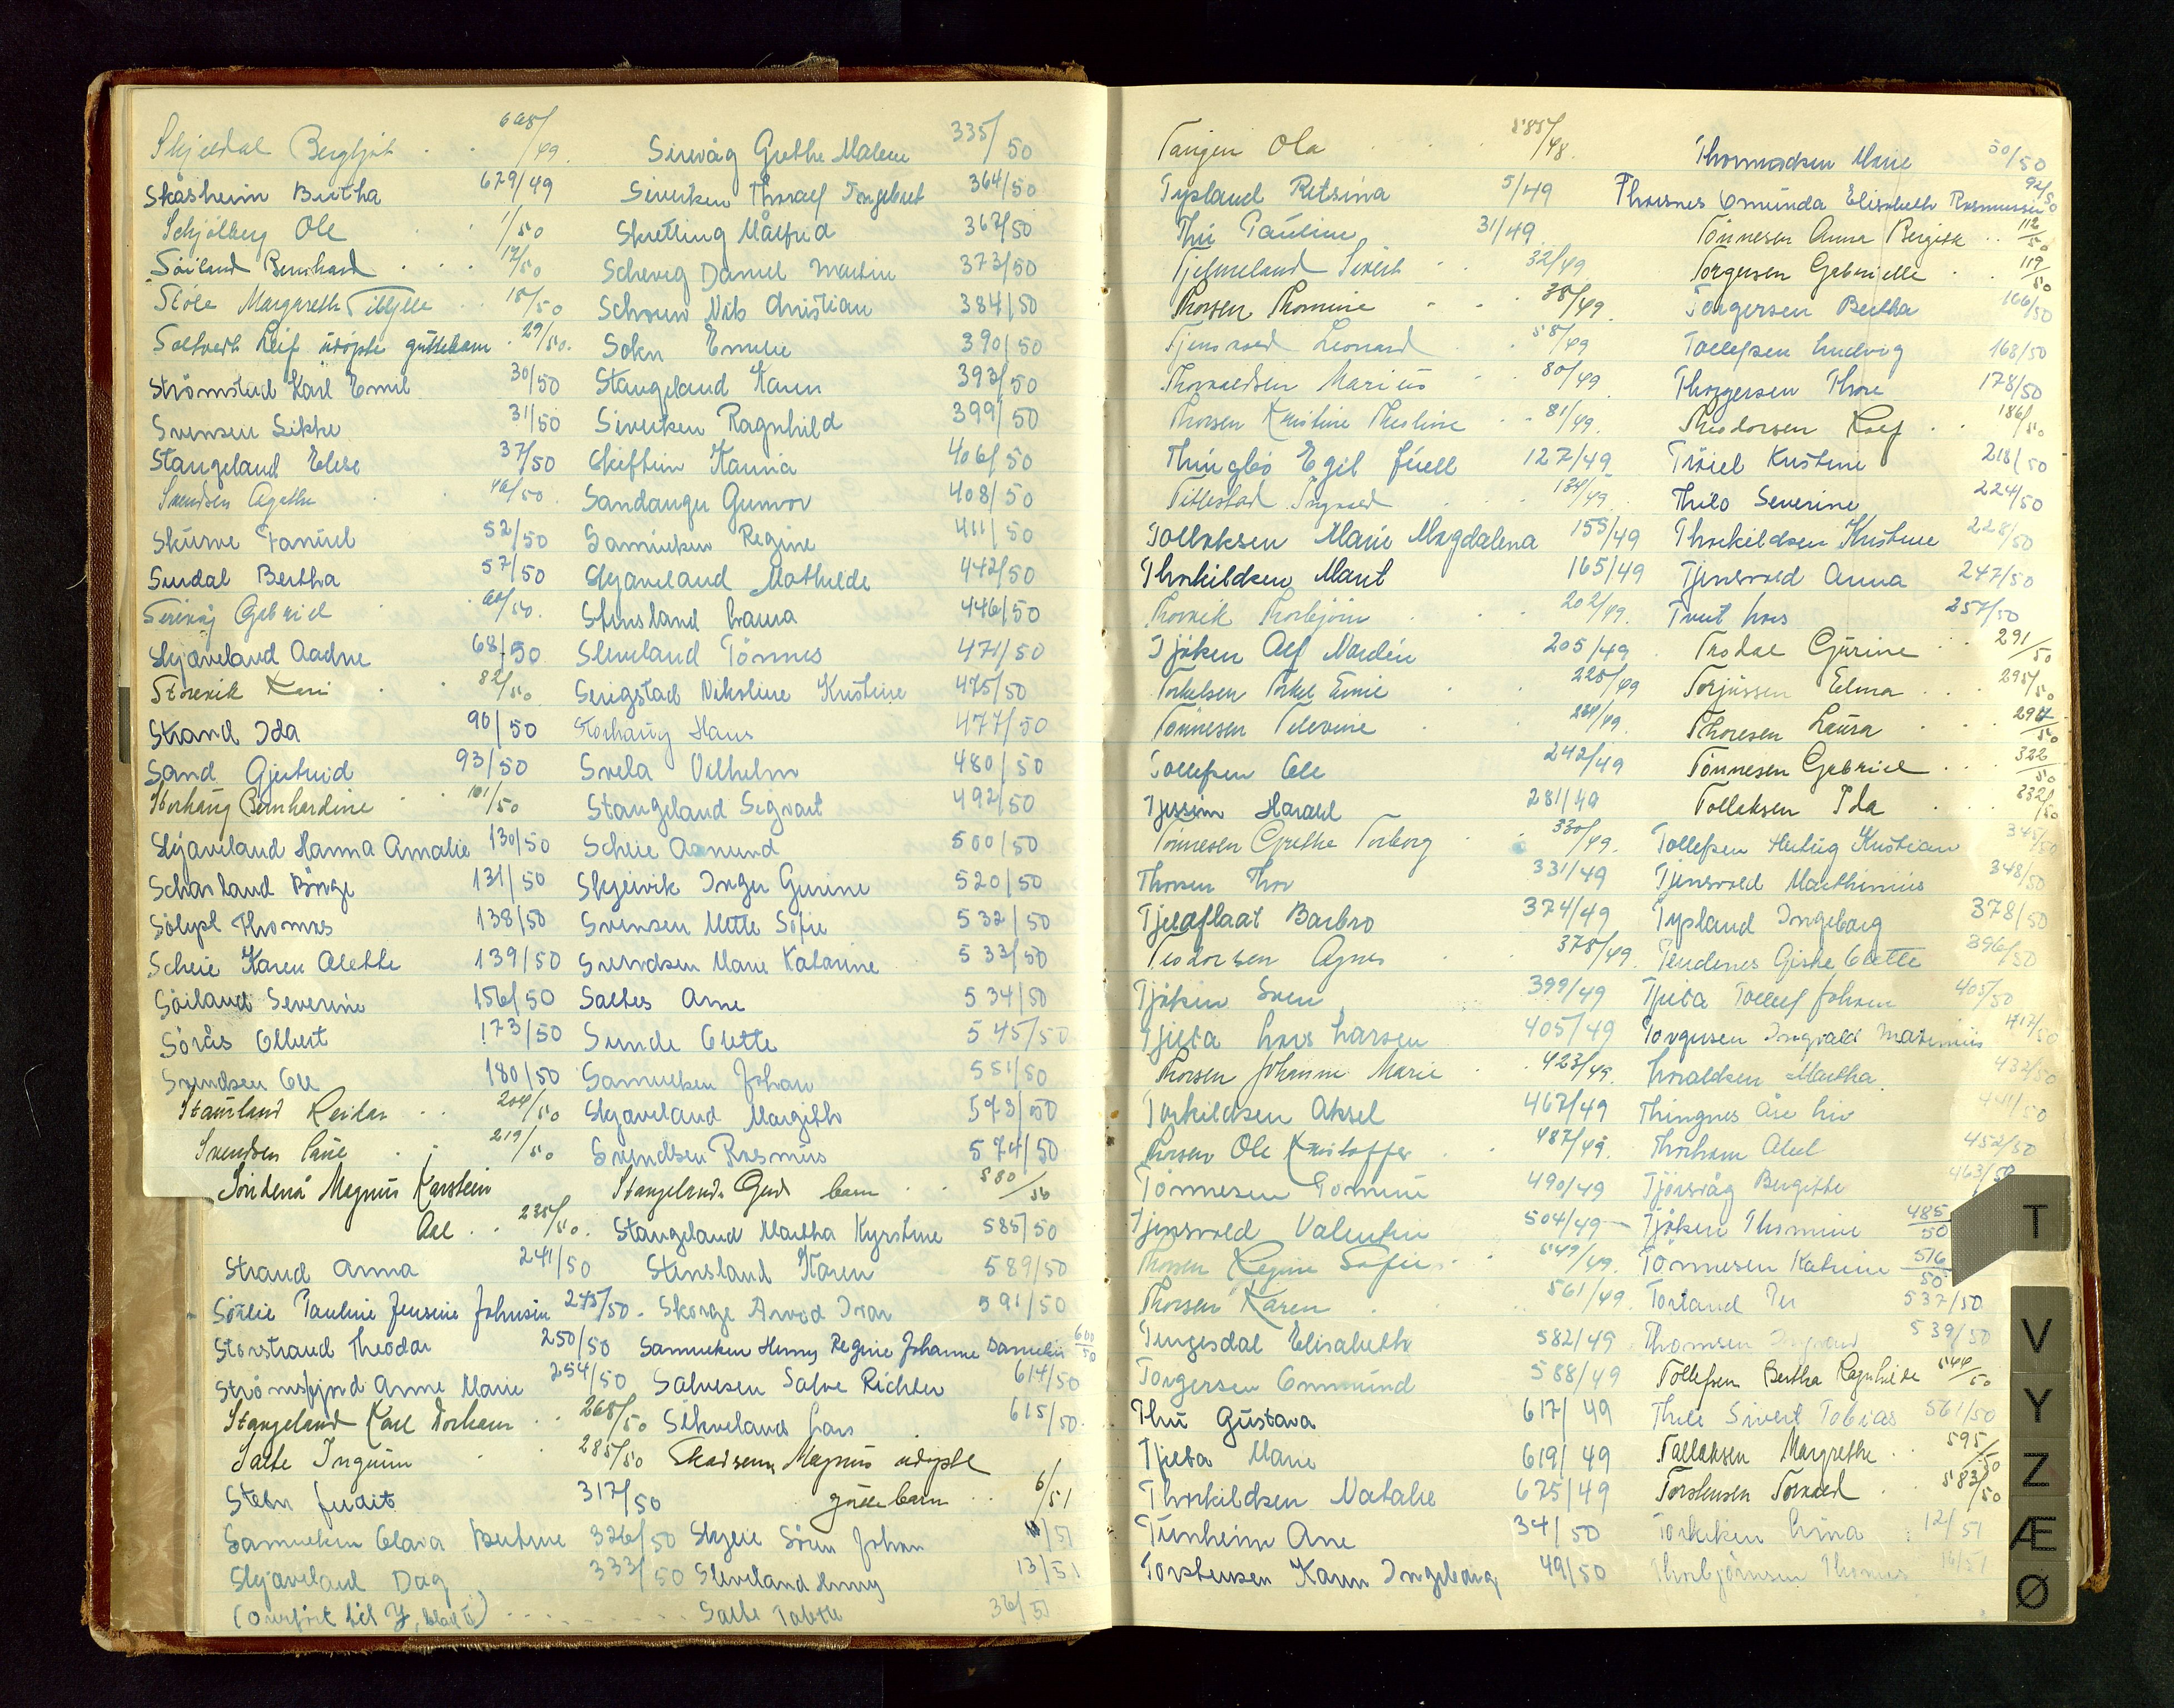 Skjeldal Bergljot . . 668/49.
Skåsheim Bertha 679/49
Schjølberg Ole . . 1/50
Söiland Bernhard . . . 12/50
Støle Margareth . . 18/50
Soltvedt Leif udöpte guttebarn . 29/50.
Strömstad Karl Emil 30/50
Svensen Sikke 31/50
Stangeland Elise 37/50
Svendsen Agathe . . 40/50.
Skurve 52/50
Surdal Bertha 57/50
Gabriel . . 60/50.
Skjæveland Aadne 68/50
Storevik Kari . . 82/50
Strand Ida 90/50
Sand Gjertrud 93/50
Storhaug Bernhardine . . 101/50
Skjæveland Hanna Amalie 130/50
Scharland Börge 131/50
Thomas 138/50
Scheie Karen Alette 139/50
Söiland Severine 156/50
Sörås Olbert 173/50
Svendsen Ole 180/50
Staurland Reidar . . 204/50
Svendsen . . 219/50
Söndenå Magnus Karstein
. . 235/50.
Strand Anna 241/50
Sörlie Pauline Jensine Johnsen 245/50.
Storstrand Theodor 250/50
Strömsfjord Anne Marie 254/50
Stangeland Karl Torkaus . . 268/50
Salte Ingrim . . 285/50
Stebr Judit 317/50
Samuelsen Clara Bertine 326/50
Skjæveland Dag 333/50
(Overfört til Y, blad 6)
Sirevåg Grethe Malene 335/50
Sivertsen Thoralf Ingebret 364/50
Skretting Målfrid 367/50
Schevig Daniel Martin 373/50
Schouw Nils Christian 384/50
Sokn Emilie 390/50
Stangeland Karen 393/50
Sivertsen Ragnhild 399/50
Skiftun Hanna 406/50
Sandanger Gunvor 408/50
Samuelsen Regine 411/50
Skjæveland Mathilde 442/50
Stensland Laura 446/50
Sleveland Tönnes 471/50
Serigstad Nikoline Kristine 475/50
Storhaug Hans 477/50
Svela Vilhelm 480/50
Stangeland Sigvart 492/50
Scheie Aamund 500/50
Skjeivik Inger Gurine 520/50
Svensen Mette Sofie 532/50
Svendsen Marie Katarine 533/50
Saltes Arne 534/50
Sunde Olette 545/50
Samuelsen Johan 551/50
Skjæveland Margith 573/50
Svendsen Rasmus 574/50
Stangeland Gud barn . . 580/50
Stangeland Martha Kyrstine 585/50
Stensland Karen 589/50
Skorge Arvid Ivar 591/50
Samuelsen Henny Regine Johanne Samuline 600/50
Salvesen Salve Richter 614/50
Sikveland Lars 615/50.
Magnus udöpte
guttebarn . . 6/51
Skjeie Sören Johan 10/51
Sleveland Henny 13/51
Salte Tabette 36/51
Tangen Ola . . . 585/48.
Typland Retsina 5/49
Thu Pauline 31/49
Tjelmeland Sivert . . 32/49
Thorsen Thomine . . 38/49.
Tjensvold Leonard . . 58/49
Thorvaldsen Marius . . 80/49.
Thorsen Kristine Thesline . . 81/49.
Thingbø Egil Juell 127/49
Tittestad Ingvald . . 134/49.
Tollaksen Marie Magdalena 155/49
Thorkildsen Marit 165/49
Thorvik Thorbjörn . . 202/49.
Tjøken Alf Nordin 205/49
Torkelsen Torkel Emil . . 228/49
Tönnesen Televine . . 234/49.
Tollefsen Ole 242/49
Tjessem Harald 281/49
Tönnesen Grethe Torborg . . 330/49.
Thorsen Thor 331/49
Tjelaflaat Barbro 374/49
Teodorsen Agnes . . 378/49.
Tjøken Sven 399/49
Tjelta Lars Larsen 405/49
Thorsen Johanne Marie . . 423/49.
Torkildsen Aksel 467/49
Thorsen Ole Kristoffer . . 487/49.
Tönnesen Tomine 490/49
Tjensvold Valentin 504/49
Thorsen Regine Sofie . . 549/49.
Thorsen Karen . . 561/49.
Tengesdal Elisabeth 582/49
Torgersen Ommund 588/49
Thu Gustava 617/49
Tjelta Marie 619/49
Thorkildsen Natalie 675/49
Tunheim Ane 34/50
Torstensen Karen Ingeborg 49/50
Thomassen Marie 50/50
Thorsnes Omunda Elisabeth Rasmussen 92/50
Tönnesen Anna Bergitte . . 112/50
Torgersen Gabrielle . . 119/50
Torgersen Bertha 166/50
Tollefsen Ludvig 168/50
Thorgersen Thore 178/50
Theodorsen Rolf . . 186/50
Tröiel Kristine 218/50
Thilo Severine 224/50
Thorkildsen Kristine 228/50
Tjensvold Anna 247/50
Tveit Lars 257/50
Trodal Gurine . . 291/50
Torjussen Elma . . . 295/50
Thoresen Laura . . . 297/50
Tönnesen Gabriel . . . 322/50
Tollaksen Ida . . 332/50
Tollefsen Kristian 345/50
Tjensvold Marthinius 348/50
Typland Ingeborg 378/50
Tendenes Giske Olette 396/50
Tjelta Tollef Johan 405/50
Torgersen Ingvald Matinius 417/50
Thoraldsen Martha 432/50
Thingnes Åse Liv 441/50
Thorham Abel 452/50
Tjörsvåg Bergitte 463/50
Tjøken Thomine 485/50
Tönnesen Katrine 516/50
Torland Per 537/50
Thomsen Ingvald 539/50
Tollefsen Bertha Ragnhilde 544/50
Thele Sivert Tobias 561/50
Tallaksen Margrethe . . 595/50
Torstensen Torvald . . 583/50
Torkelsen Lina 12/51
Thorbjörnsen Thomas 16/51
T
V
Y
Z
Æ
Ø